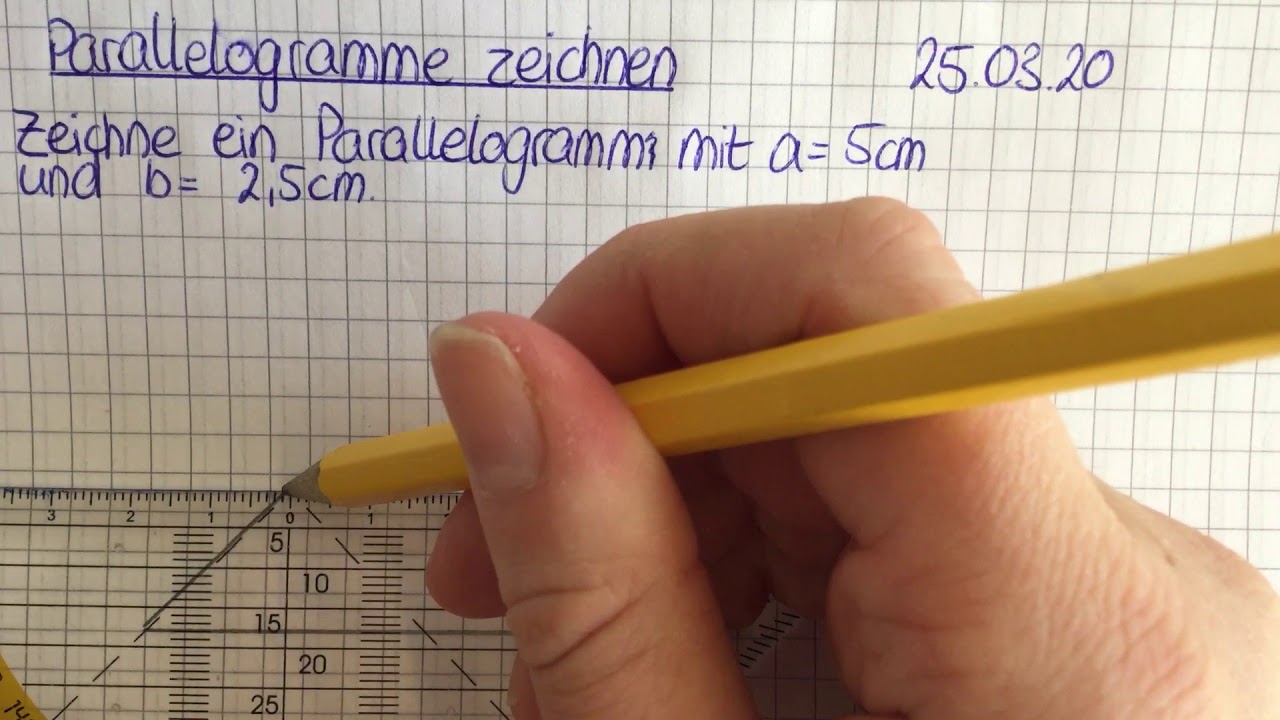 Parallelogramme zeichnen 25.03.20
Zeichne ein Parallelogramm mit a= 5cm
und b= 2,5cm.
3 2 1 0 1
5
10
15
20
25
14